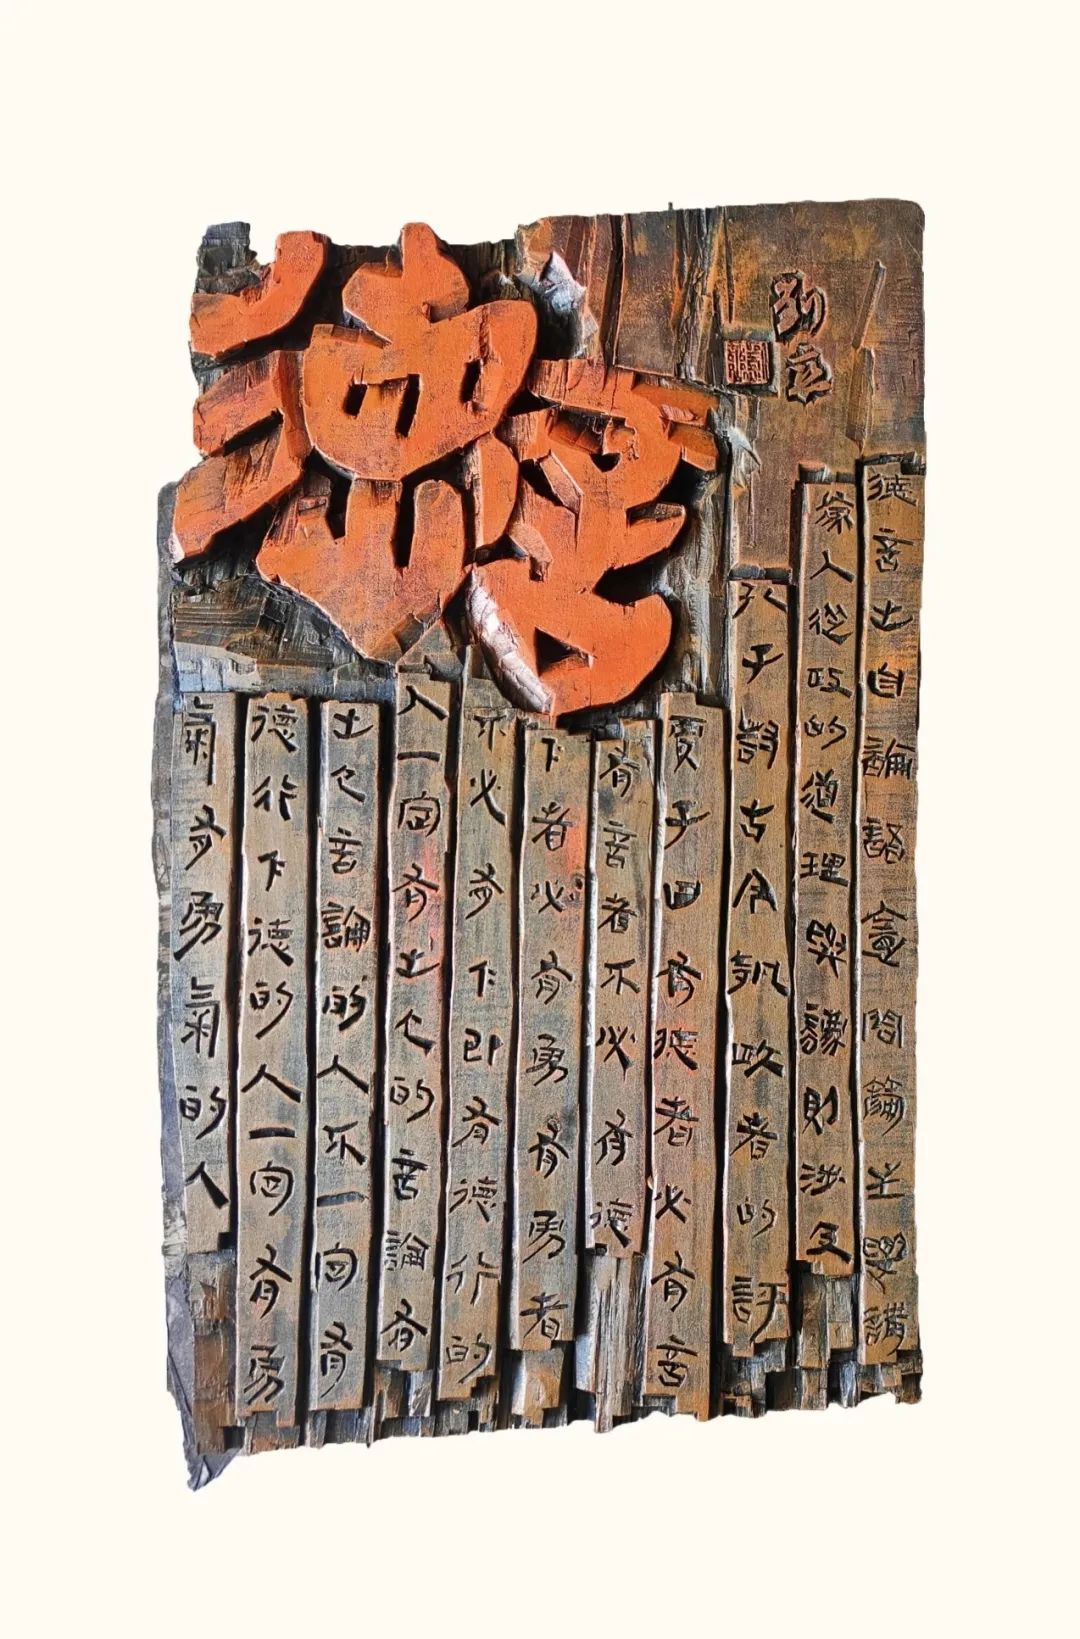 德言
德言出自論語憲問篇主要講
為人從政的道理與謙則涉及
孔子對古今執政者的評
賈子曰有德者必有言
有言者不必有德
仁者必有勇有勇者
不必有仁即有德行的
人一定有出色的言論有
出色言論的人不一定有
德行仁德的人一定有勇
氣有勇氣的人